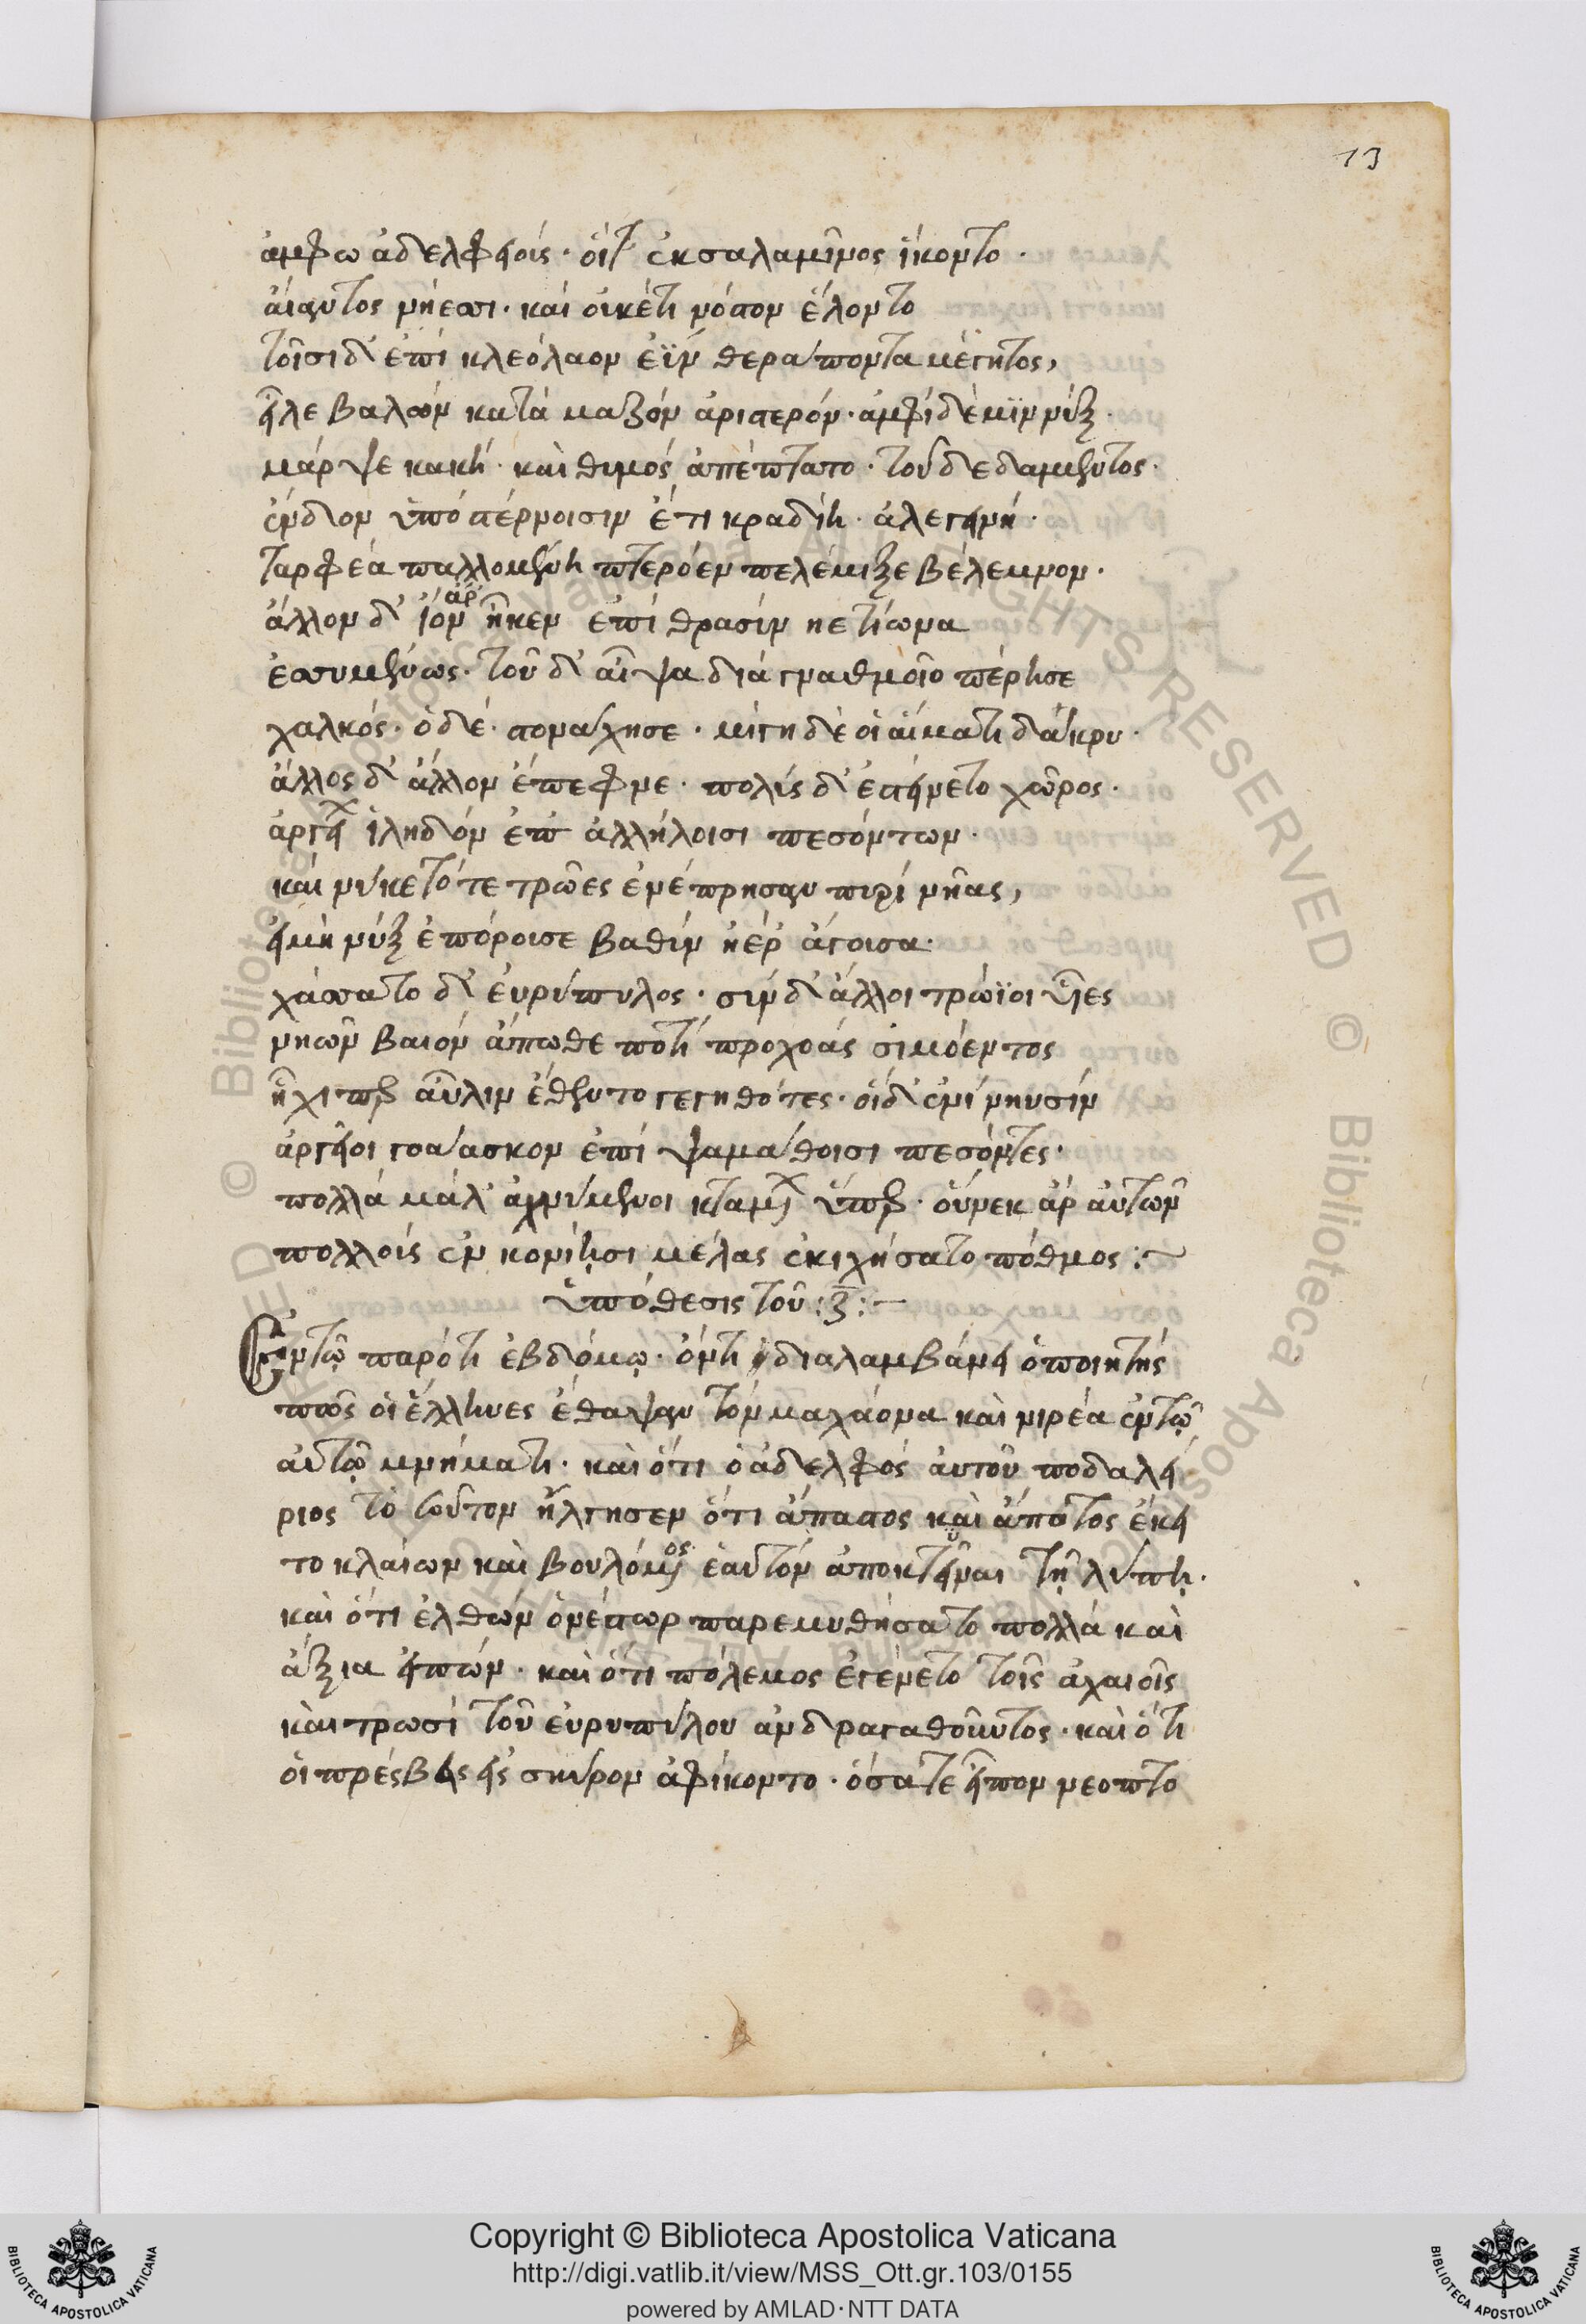 13
ἄμφω ἀδελφειούς· οἵ τ' ἐκ σαλαμῖνος ἵκοντο·
αἴαντος νήεσσι· καὶ οὐκέτι νόστον ἕλοντο
τοῖσι δ' ἐπὶ κλεόλαον ἐῢν θεράποντα μέγητος,
εἷλε βαλὼν κατὰ μαζὸν ἀριστερόν· ἀμφὶ δέ μιν νὺξ·
μάρψε κακή· καὶ θυμὸς ἀπέπτατο· τοῦ δὲ δαμέντος·
ἔνδιον ὑπὸ στέρνοισιν ἔτι κραδίη· ἀλεγεινὴ·
ταρφέα παλλομένη πτερόεν πελέμιξε βέλεμνον·
ἄλλον δ' ἰὸν ἂρ ἧκεν ἐπὶ θρασὺν ἠετίωνα
ἐσσυμένως· τοῦ δ' αἶψα διὰ γναθμοῖο πέρησε
χαλκός· ὁ δέ· στονάχησε· μίγη δέ οἱ αἵματι δάκρυ·
ἄλλος δ' ἄλλον ἔπεφνε· πολὺς δ' ἐστείνετο χῶρος·
ἀργείων ἰληδὸν ἐπ' ἀλλήλοισι πεσόντων·
καί νύ κε τότε τρῶες ἐνέπρησαν πυρὶ νῆας,
εἰ μὴ νὺξ ἐπόρουσε βαθὺν ἠέρ' ἄγουσα·
χάσσατο δ' εὐρύπυλος· σὺν δ' ἄλλοι τρώϊοι υἷες
νηῶν βαιὸν ἄπωθε ποτὶ προχοὰς σιμόεντος
ἧχί περ αὖλιν ἔθεντο γεγηθότες· οἱ δ' ἐνὶ νηυσὶν
ἀργεῖοι γοάασκον ἐπὶ ψαμάθοισι πεσόντες·
πολλὰ μάλ' ἀχνύμενοι κταμένων ὕπερ· οὕνεκ' ἄρ' αὐτῶν
πολλοὺς ἐν κονίῃσι μέλας ἐκιχήσατο πότμος :~
ὑπόθεσις τοῦ : ζ : —
Ἐν τῷ παρόντι ἑβδόμῳ· ὄντι διαλαμβάνει ὁ ποιητὴς
πῶς οἱ ἕλληνες ἔθαψαν τὸν μαχάονα καὶ νιρέα ἐν τῷ
αὐτῷ μνήματι· καὶ ὅτι ὁ ἀδελφὸς αὐτοῦ ποδαλεί
ριος τὸ σοῦτον ἤλγησεν ὅτι ἄπαστος καὶ ἄποτος ἔκει
το κλαίων καὶ βουλόμενος ἑαυτὸν ἀποκτεῖναι τῇ λύπῃ·
καὶ ὅτι ἐλθὼν ὁ νέστωρ παρεμυθήσατο πολλὰ καὶ
ἄξια εἰπών· καὶ ὅτι πόλεμος ἐγένετο τοῖς ἀχαιοῖς
καὶ τρωσὶ τοῦ εὐρυπύλου ἀνδραγαθοῦντος· καὶ ὅτι
οἱ πρέσβεις εἰς σκύρον ἀφίκοντο· ὅσα τε εἶπον νεοπτο
Copyright © Biblioteca Apostolica Vaticana
http://digi.vatlib.it/view/MSS_Ott.gr.103/0155
powered by AMLAD·NTT DATA